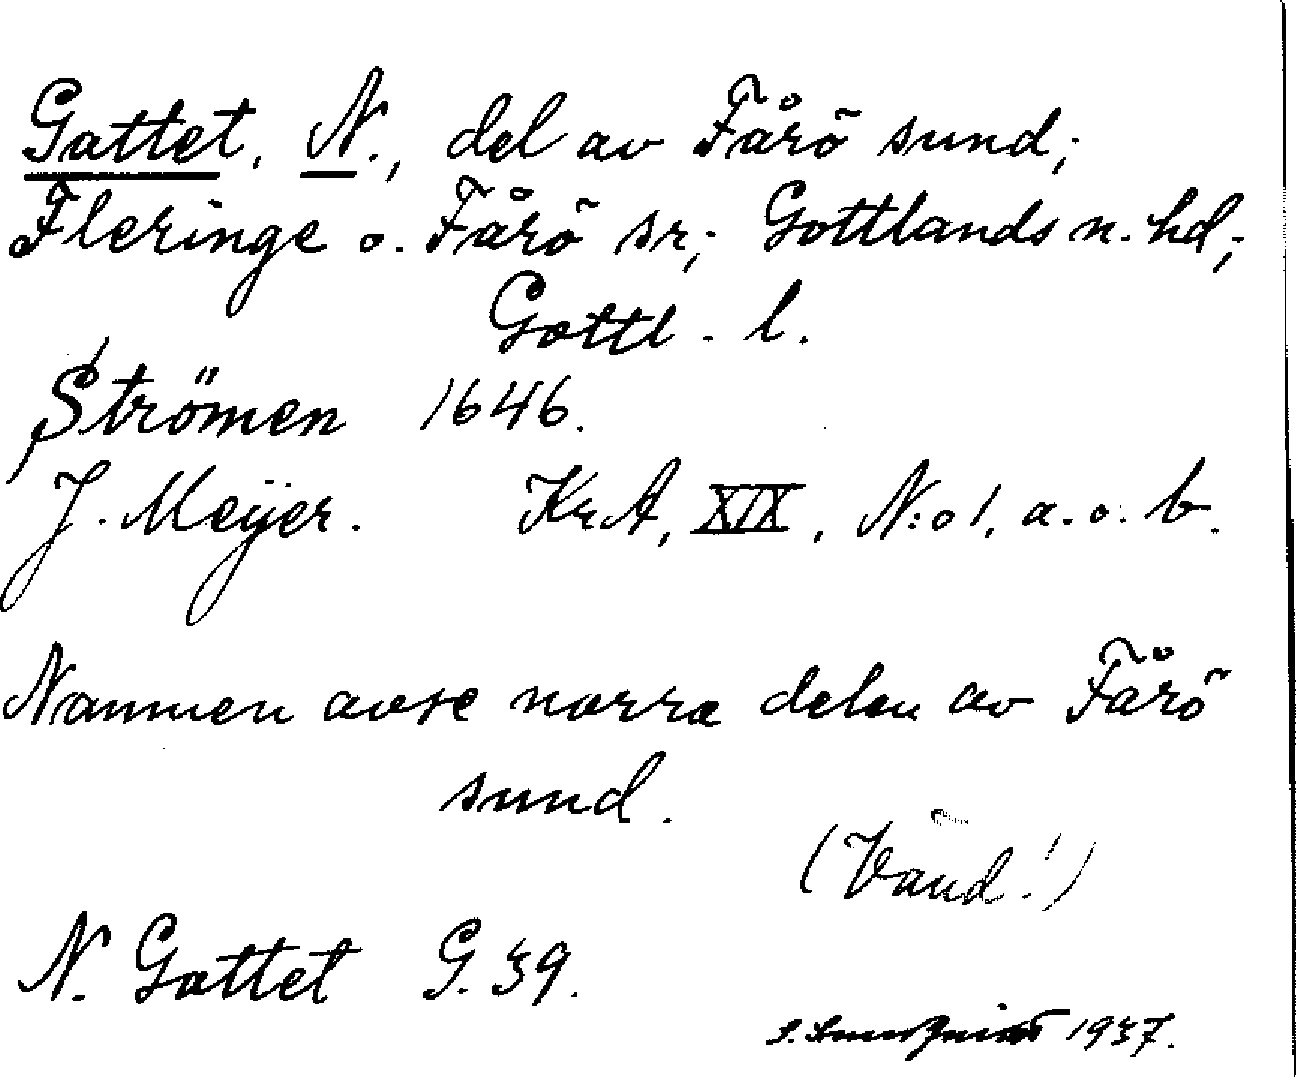 Gattet, N., del av Fårö sund;
Fleringe o. Fårö sr; Gottlands n. hd;
Gottl. l.
Strömen 1646.
J. Meÿer. KrA, XIX, N:o 1, a. o. b.
Namnen avse norra delen av Fårö
sund.
(Vänd!)
N. Gattet G. 39.
1937.